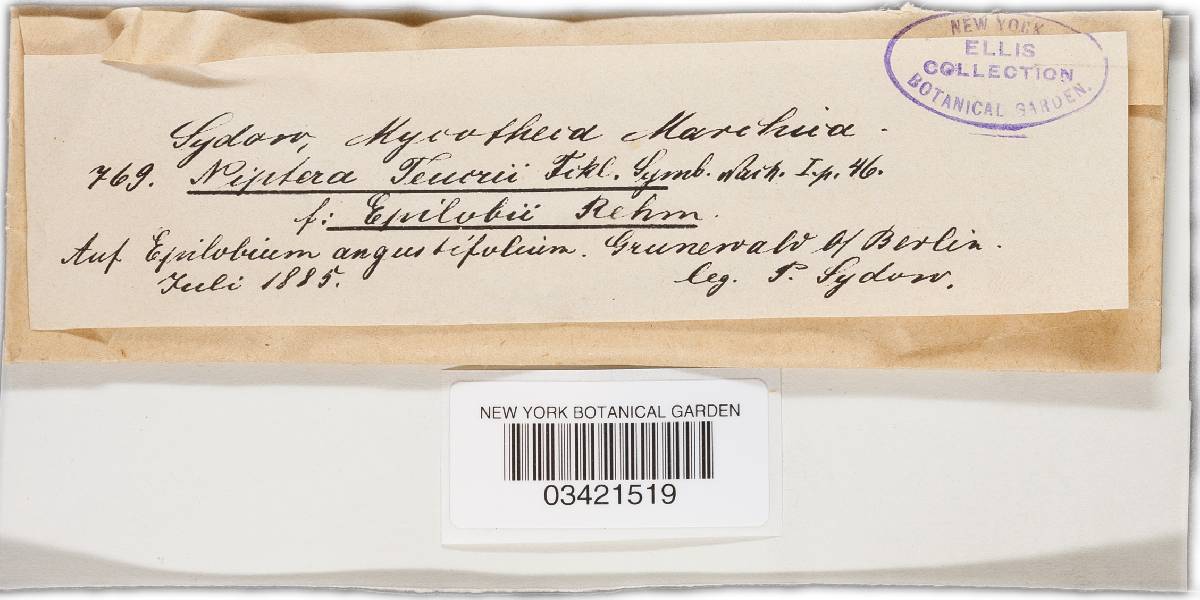 NEW YORK
ELLIS
COLLECTION
BOTANICAL GARDEN.
Sydow, Mycotheca Marchica.
769. Niptera Teucrii Fckl. Symb. Nach. I. p. 46.
f: Epilobii Rehm.
Auf Epilobium angustifolium. Grunewald b/ Berlin.
Juli 1885. leg. P. Sydow.
NEW YORK BOTANICAL GARDEN
03421519